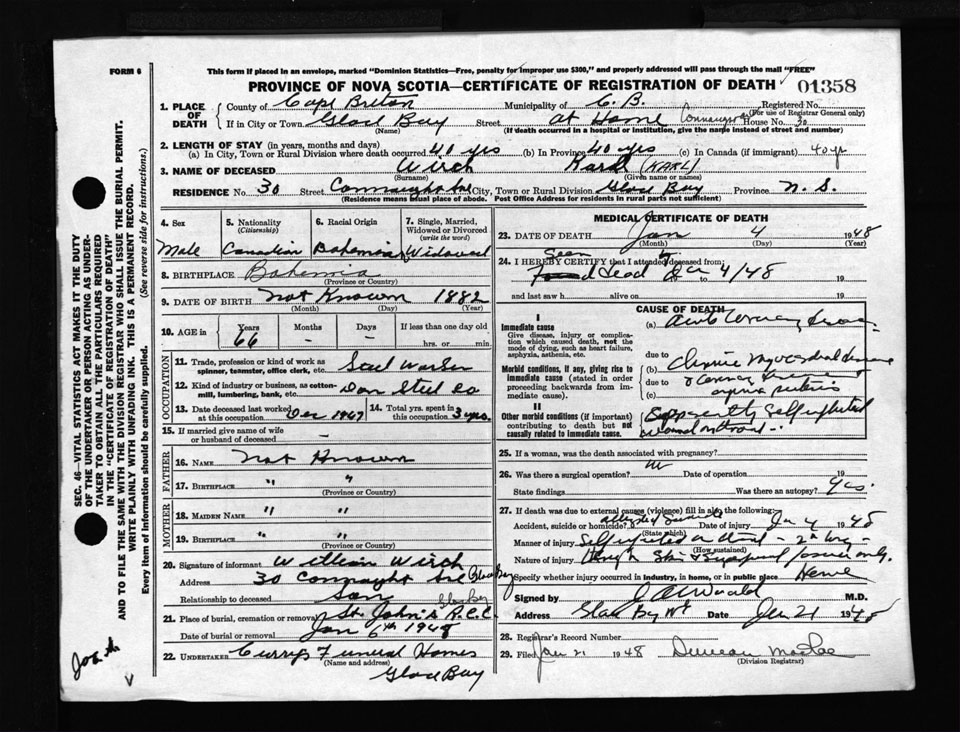 FORM 6
This form if placed in an envelope, marked "Dominion Statistics—Free, penalty for improper use $300," and properly addressed will pass through the mail "FREE"
PROVINCE OF NOVA SCOTIA—CERTIFICATE OF REGISTRATION OF DEATH 01358
1. PLACE OF DEATH
County of Cape Breton Municipality of C. B. Registered No.
(For use of Registrar General only)
If in City or Town Glace Bay Street at Home House No. 30
(Name) (If death occurred in a hospital or institution, give the name instead of street and number)
2. LENGTH OF STAY (in years, months and days)
(a) In City, Town or Rural Division where death occurred 40 yrs (b) In Province 40 yrs (c) In Canada (if immigrant) 40 yr
3. NAME OF DECEASED Wirch Karl (KARL)
(Surname) (Given name or names)
RESIDENCE No. 30 Street Connaught Ave City, Town or Rural Division Glace Bay Province N. S.
(Residence means usual place of abode. Post Office Address for residents in rural parts not sufficient)
4. Sex
Male
5. Nationality
(Citizenship)
Canadian
6. Racial Origin
Bohemian
7. Single, Married, Widowed or Divorced
(write the word)
Widowed
8. BIRTHPLACE Bohemia
(Province or Country)
9. DATE OF BIRTH Not Known 1882
(Month) (Day) (Year)
10. AGE in Years Months Days If less than one day old
66 - - hrs. or min.
OCCUPATION
11. Trade, profession or kind of work as spinner, teamster, office clerk, etc. Steel Worker
12. Kind of industry or business, as cotton-mill, lumbering, bank, etc. Dom Steel Co
13. Date deceased last worked at this occupation Dec 1947
14. Total yrs. spent in this occupation 3 yrs.
15. If married give name of wife or husband of deceased —
FATHER
16. NAME Not Known
17. BIRTHPLACE " "
(Province or Country)
MOTHER
18. MAIDEN NAME " "
19. BIRTHPLACE " "
(Province or Country)
20. Signature of informant William Wirch
Address 30 Connaught Ave Glace Bay
Relationship to deceased Son
21. Place of burial, cremation or removal St John's R.C.C. Glace Bay
Date of burial or removal Jan 6th 1948
22. UNDERTAKER Curry's Funeral Homes
(Name and address)
Glace Bay
MEDICAL CERTIFICATE OF DEATH
23. DATE OF DEATH Jan 4 1948
(Month) (Day) (Year)
24. I HEREBY CERTIFY that I attended deceased from:
Seen
Found dead Jan 4/48 to 19
and last saw h alive on 19
CAUSE OF DEATH
I
Immediate cause
Give disease, injury or complication which caused death, not the mode of dying, such as heart failure, asphyxia, asthenia, etc.
(a) Acute Coronary
due to
Chronic Myocardial
Morbid conditions, if any, giving rise to immediate cause (stated in order proceeding backwards from immediate cause).
due to
(c)
II
Other morbid conditions (if important) contributing to death but not causally related to immediate cause.
Apparently Self inflicted
wound on throat
25. If a woman, was the death associated with pregnancy?
26. Was there a surgical operation? Date of operation 19
State findings Was there an autopsy? Yes.
27. If death was due to external causes (violence) fill in also the following:
Accident, suicide or homicide? alleged Suicide Date of injury Jan 4 1948
(State which)
Manner of injury Self inflicted
(How sustained)
Nature of injury through Skin only.
Specify whether injury occurred in industry, in home, or in public place Home
Signed by M.D.
Address Glace Bay Date Jan 21 1948
28. Registrar's Record Number
29. Filed Jan 21 1948 Duncan MacRae
(Division Registrar)
SEC. 46—VITAL STATISTICS ACT MAKES IT THE DUTY
OF THE UNDERTAKER OR PERSON ACTING AS UNDER-
TAKER TO OBTAIN ALL THE PARTICULARS REQUIRED
IN THE "CERTIFICATE OF REGISTRATION OF DEATH"
AND TO FILE THE SAME WITH THE DIVISION REGISTRAR WHO SHALL ISSUE THE BURIAL PERMIT.
WRITE PLAINLY WITH UNFADING INK. THIS IS A PERMANENT RECORD.
Every item of information should be carefully supplied. (See reverse side for instructions.)